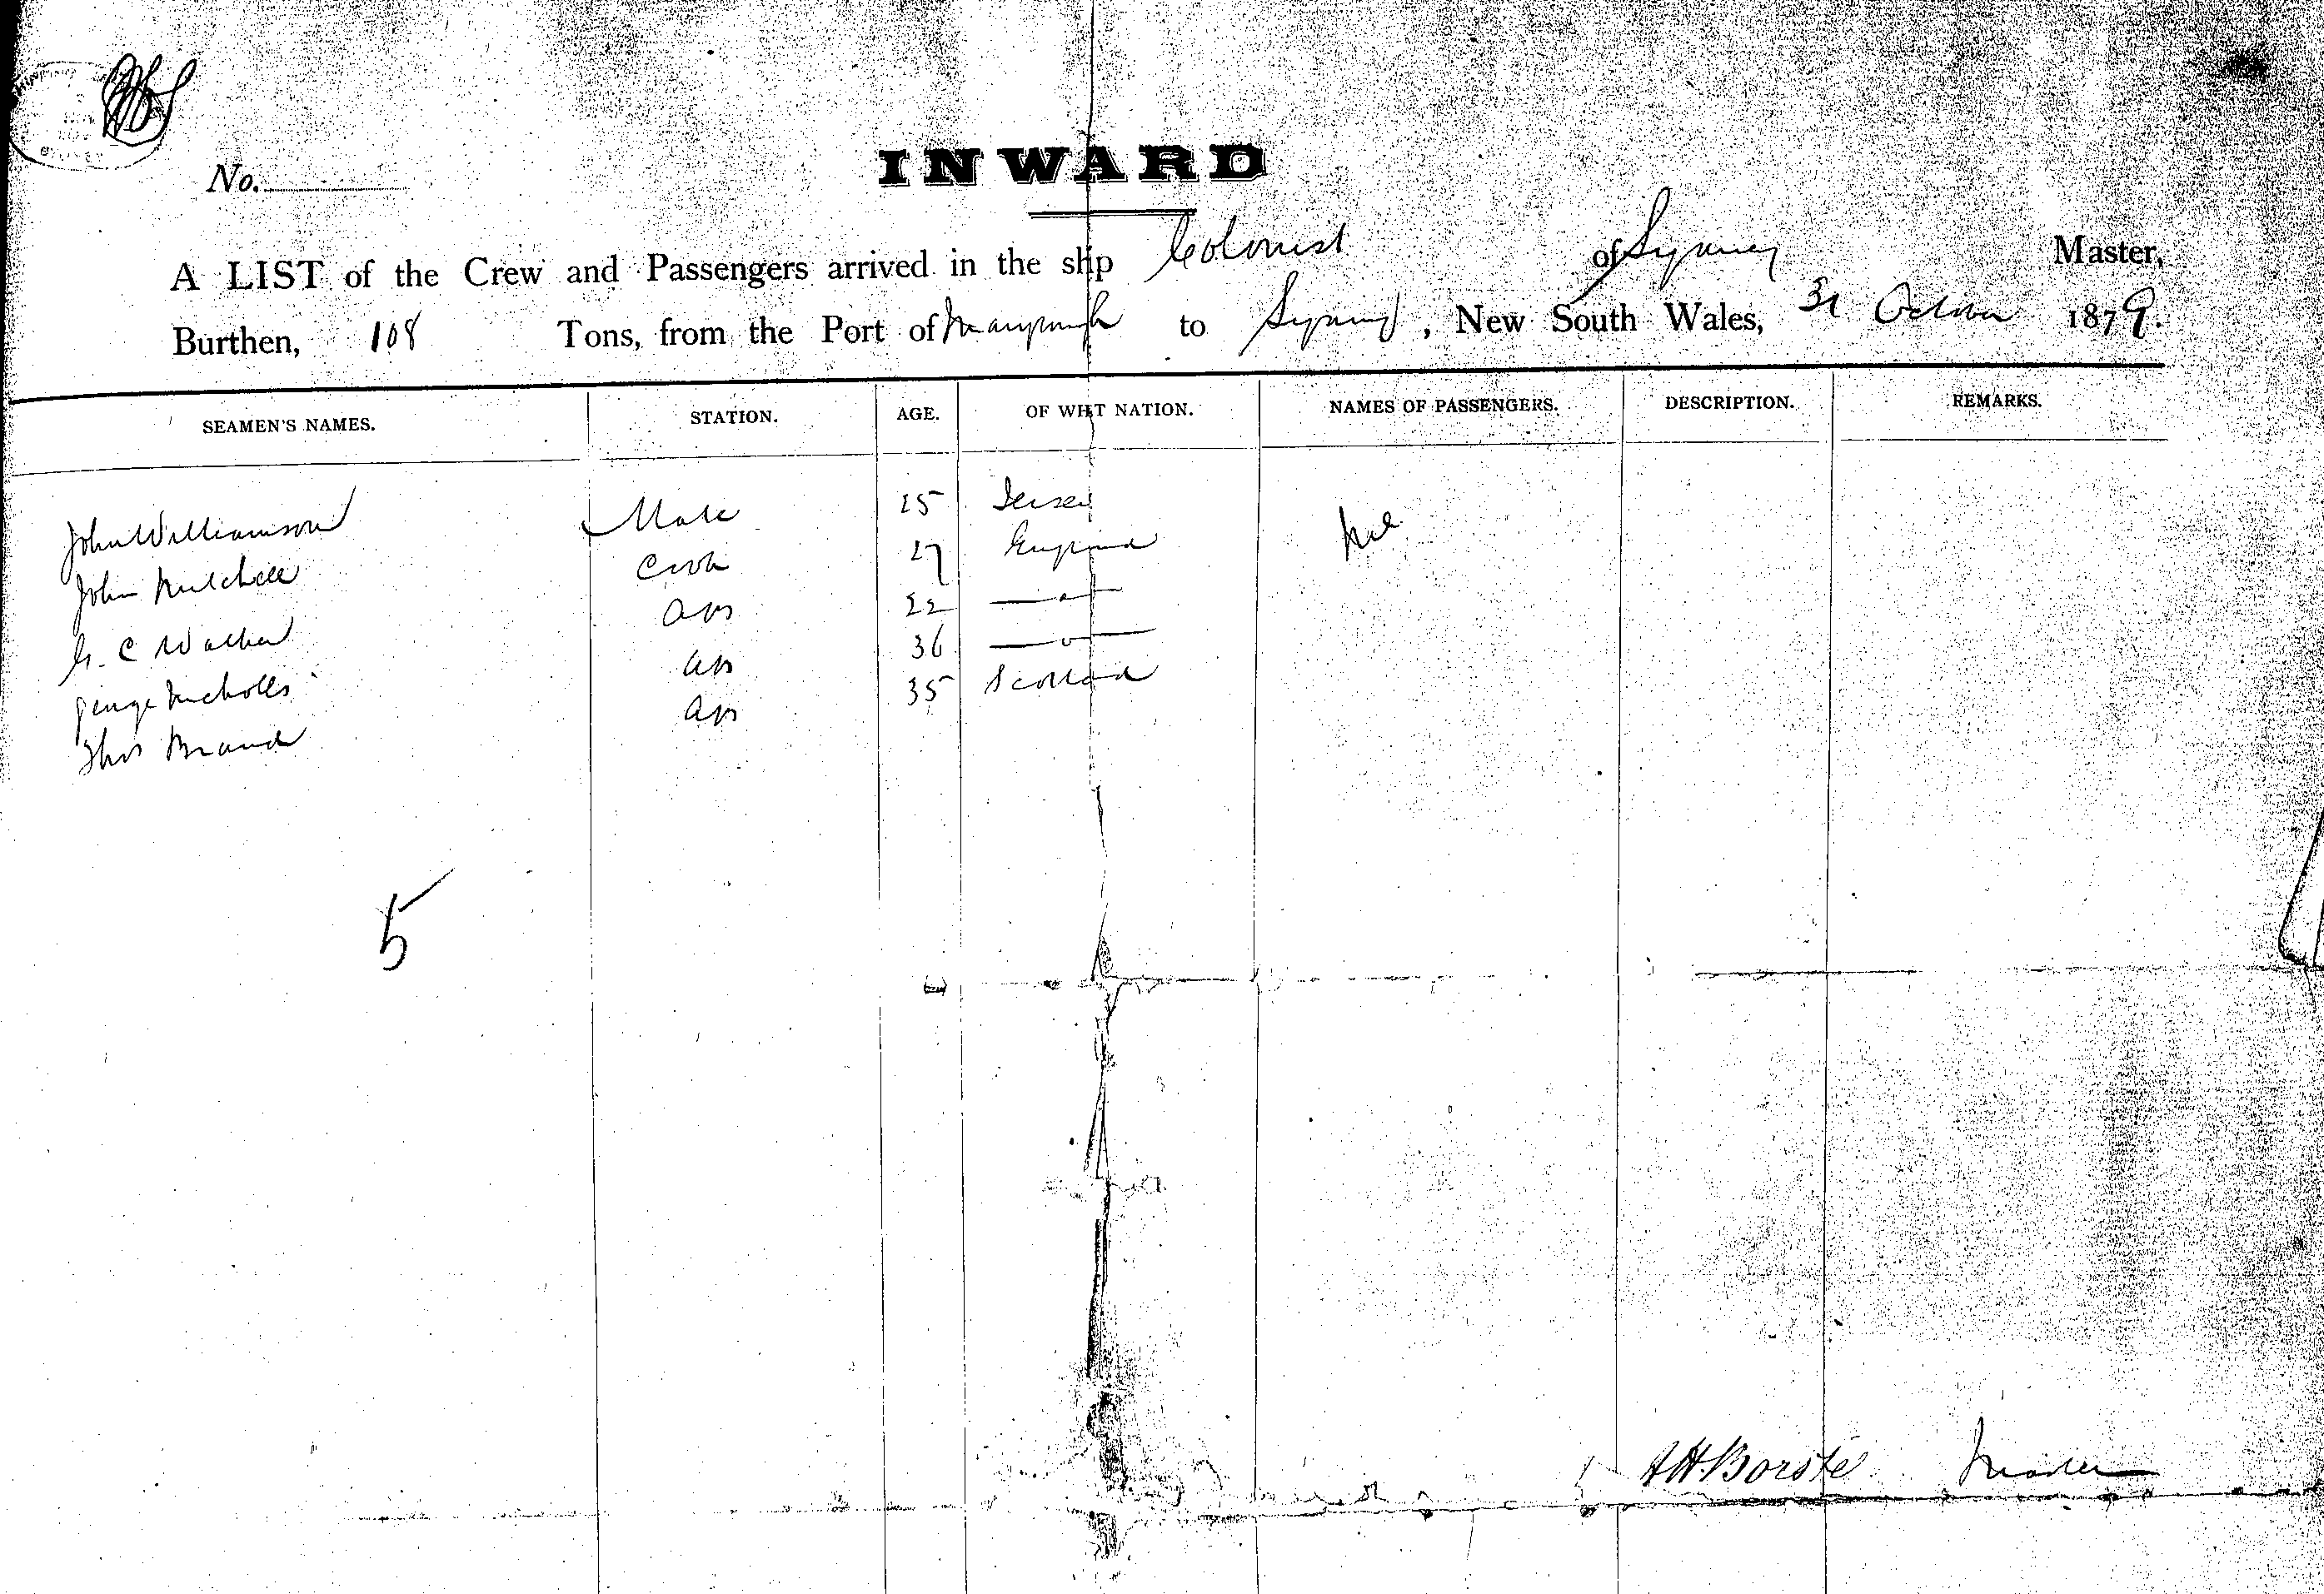 No.
INWARD
A LIST of the Crew and Passengers arrived in the ship Colonist of Sydney Master,
Burthen, 108 Tons, from the Port of Maryborough to Sydney, New South Wales, 31 October 1879.
SEAMEN'S NAMES. STATION. AGE. OF WHAT NATION. NAMES OF PASSENGERS. DESCRIPTION. REMARKS.
John Williamson Mate 25 Jersey Nil
John Mitchell Cook 27 England
G. C Walker AB 22 — o —
George Nicholls AB 36 — o —
Thos Brand AB 35 Scotland
5
AH Borste Master